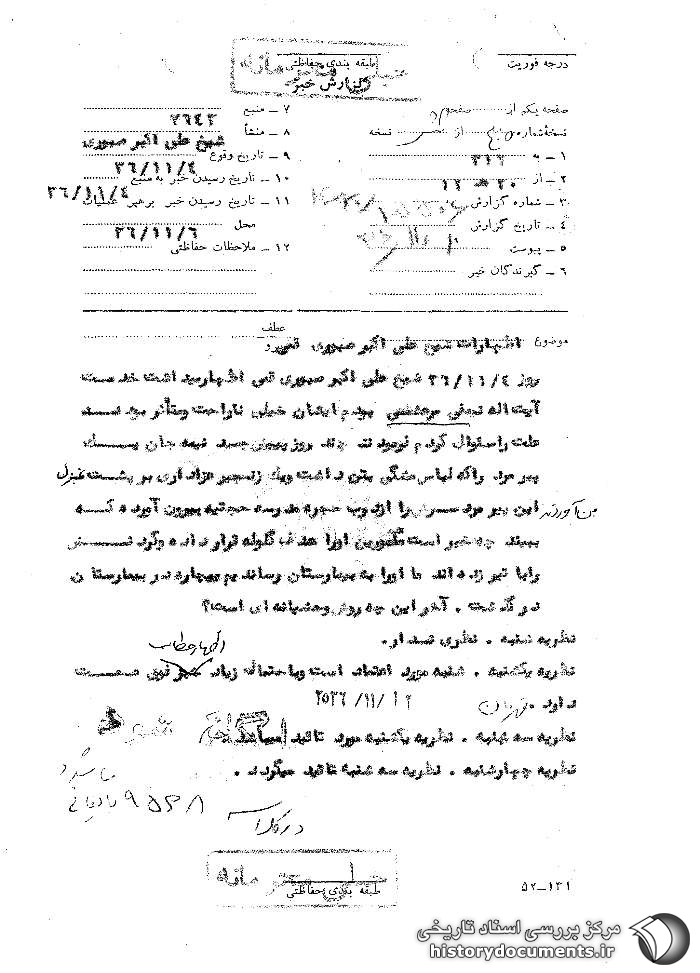 درجه فوریت
طبقه بندی حفاظتی
خیلی محرمانه
گزارش خبر
صفحه یکم از صفحه
نسخه شماره از نسخه
۱ ـ به ۳۱۲
۲ ـ از ۲۰ ه ۱۲
۳ ـ شماره گزارش
۴ ـ تاریخ گزارش
۵ ـ پیوست
۶ ـ گیرندگان خبر
۷ ـ منبع ۲۶۴۳
۸ ـ منشأ شیخ علی اکبر صبوری
۹ ـ تاریخ وقوع ۳۶/۱۱/۴
۱۰ ـ تاریخ رسیدن خبر به منبع ۳۶/۱۱/۴
۱۱ ـ تاریخ رسیدن خبر برهبر عملیات
محل ۳۶/۱۱/۶
۱۲ ـ ملاحظات حفاظتی
عطف
موضوع اظهارات شیخ علی اکبر صبوری قمی
روز ۳۶/۱۱/۴ شیخ علی اکبر صبوری قمی اظهار میداشت خدمت
آیت اله نجفی مرعشی بودم ایشان خیلی ناراحت ومتأثر بودند
علت را سئوال کردم فرمودند چند روز پیش جسد نیمه جان یک
پیر مرد را که لباس مشکی بتن داشت ویک زنجیر عزاداری بر پشت منزل
من آوردند این پیر مرد سرش را از درب حجره مدرسه حجتیه بیرون آورده که
ببیند چه خبر است مأمورین اورا هدف گلوله قرار داده وگردنش
را با تیر زده اند ما اورا به بیمارستان رساندیم بیچاره در بیمارستان
در گذشت . آخر این چه روش وحشیانه ای است؟
نظریه شنبه . نظری ندارد.
اظهارات
نظریه یکشنبه . شنبه مورد اعتماد است وباحتمال زیاد خبر فوق صحت
دارد . ۲۵۳۶/۱۱/۱۲
نظریه سه شنبه . نظریه یکشنبه مورد تائید میباشد
نظریه چهارشنبه . نظریه سه شنبه تائید میگردد .
خیلی محرمانه
طبقه بندی حفاظتی
۵۲-۱۳۱
مرکز بررسی اسناد تاریخی
historydocuments.ir